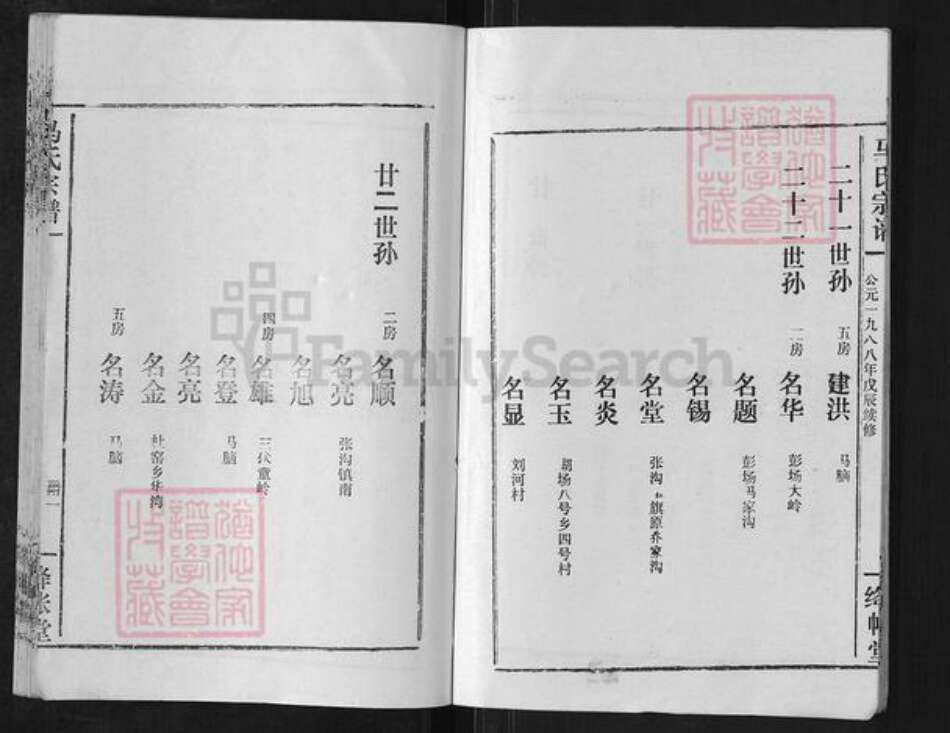 马氏宗谱
公元一九八八年戊辰续修
绛帐堂
二十一世孙
五房 建洪 马脑
二十二世孙
二房 名华 彭场大岭
名题 彭场马家沟
名锡
名堂 张沟红旗原乔家沟
名炎
名玉 胡场八号乡四号村
名显 刘河村
廿二世孙
二房 名顺
名亮 张沟镇南
名旭
四房 名雄 三伏童岭
名登 马脑
名亮
名金 杜窑乡华湾
五房 名涛 马脑
马氏宗谱
绛帐堂
FamilySearch
猶他家譜學會收藏
猶他家譜學會收藏